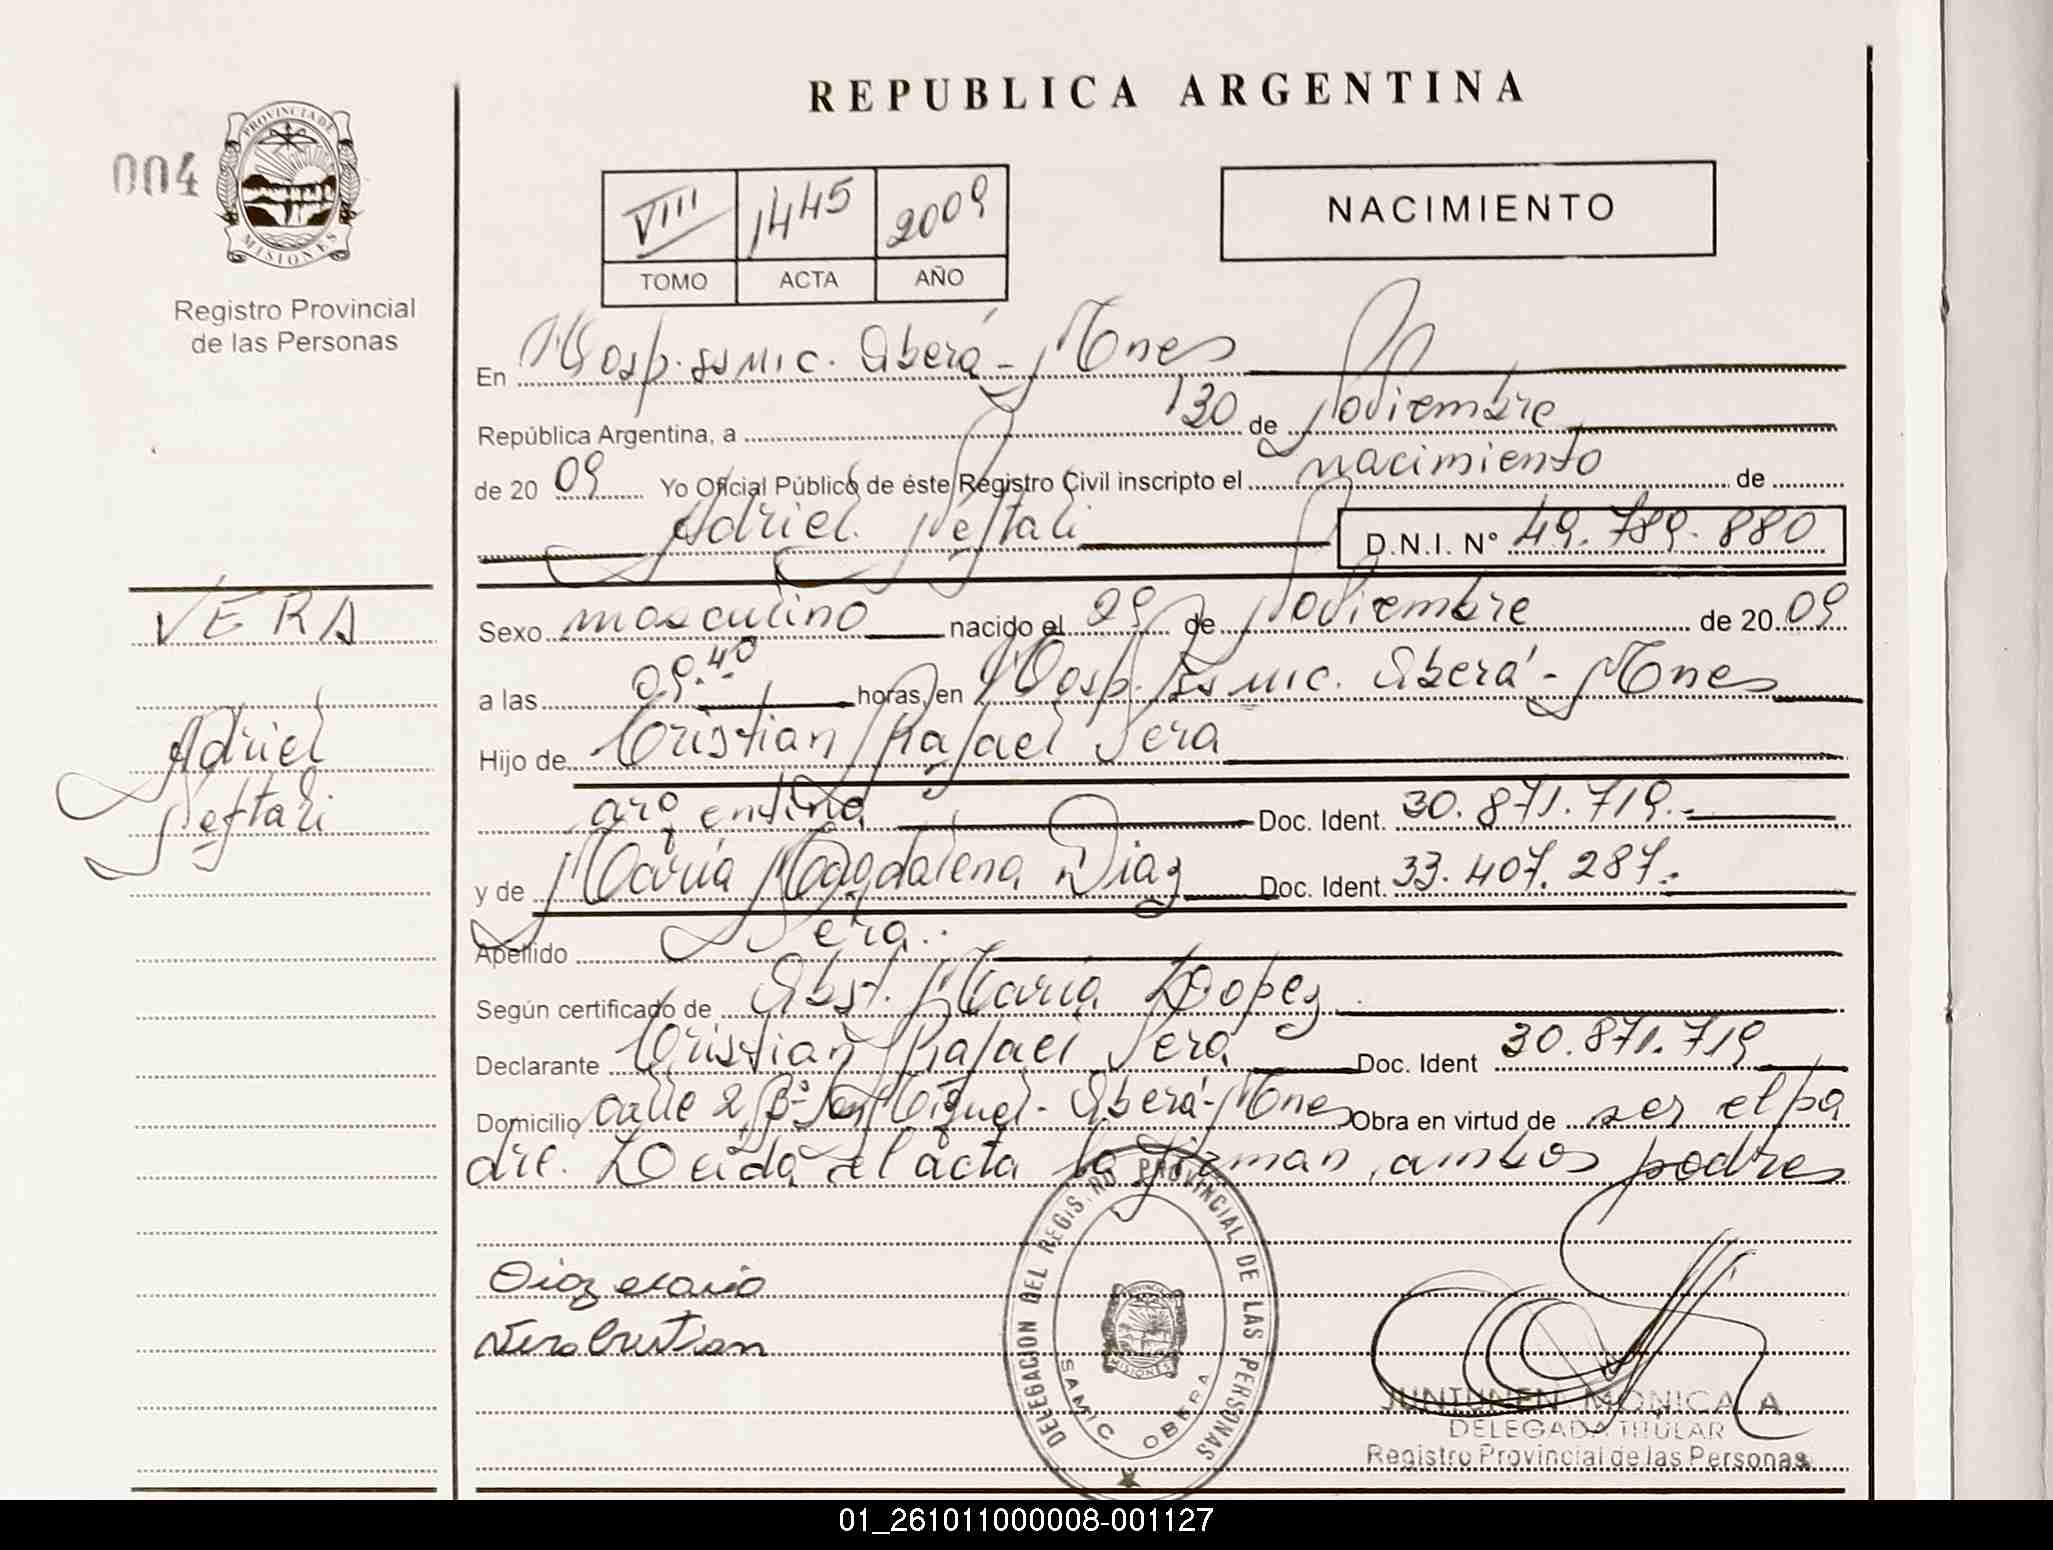 REPUBLICA ARGENTINA
004
PROVINCIA DE
MISIONES
Registro Provincial
de las Personas
VIII 1445 2009
TOMO ACTA AÑO
NACIMIENTO
En Hosp. SAMIC. Oberá - Mnes
República Argentina, a 30 de Noviembre
de 20 09 Yo Oficial Público de éste Registro Civil inscripto el nacimiento de
Adriel Neftali D.N.I. N° 49.789.880
VERA
Adriel
Neftali
Sexo masculino nacido el 29 de Noviembre de 20 09
a las 09.40 horas, en Hosp. SAMIC. Oberá - Mnes
Hijo de Cristian Rafael Vera
argentina Doc. Ident. 30.871.719.-
y de María Magdalena Diaz Doc. Ident. 33.407.287.-
Apellido Vera.
Según certificado de Obst. María Lopez
Declarante Cristian Rafael Vera Doc. Ident 30.871.719
Domicilio calle 2, B° San Miguel - Oberá - Mnes Obra en virtud de ser el pa
dre. Leida el acta la firman, ambos padres
Diaz Maria
Vera Cristian
DELEGACION DEL REGISTRO PROVINCIAL DE LAS PERSONAS
SAMIC OBERA
MISIONES
JUNTUNEN MONICA A.
DELEGADA TITULAR
Registro Provincial de las Personas
01_261011000008-001127